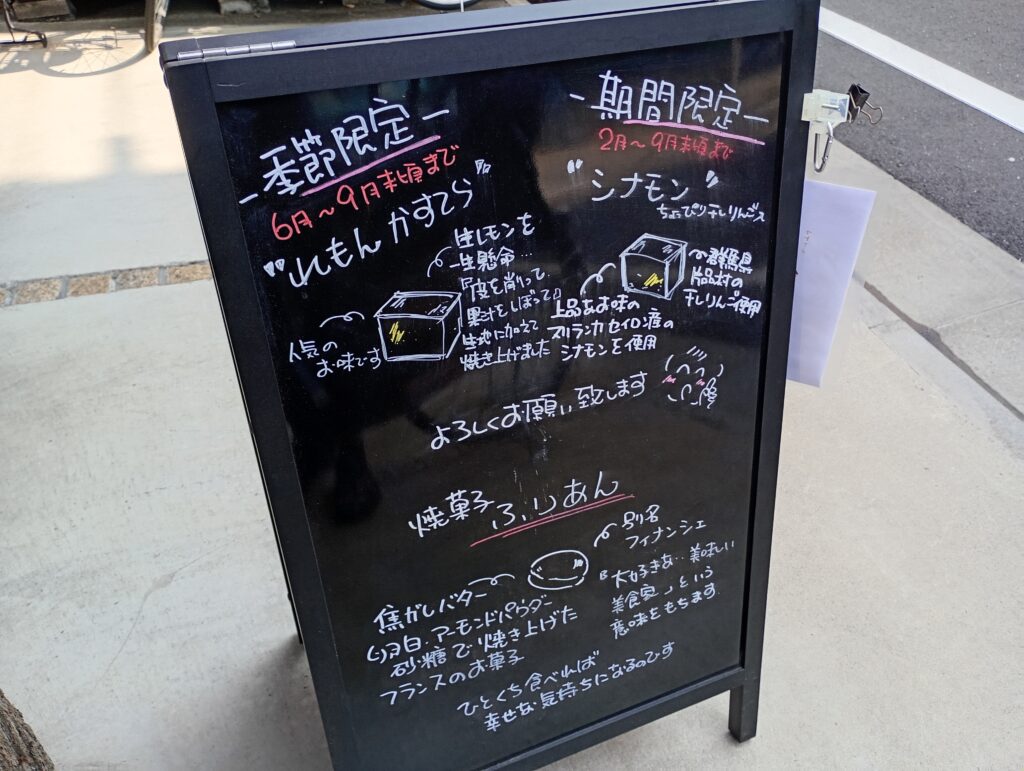 -季節限定-
6月～9月末頃まで
"れもん かすてら"
生レモンを
一生懸命…
『皮を削って
果汁をしぼって』
生地に加えて
焼き上げました
人気の
お味です
-期間限定-
2月～9月末頃まで
"シナモン"
ちょっぴり干しりんごス
群馬県
片品村の
干しりんご使用
上品なお味の
スリランカセイロン産の
シナモンを使用
よろしくお願い致します
焼菓子 ふりあん
別名
フィナンシェ
焦がしバター
卵白、アーモンドパウダー
砂糖で焼き上げた
フランスのお菓子
『大好きな…美味しい
美食家』という
意味をもちます
ひとくち食べれば
幸せな気持ちになるのです